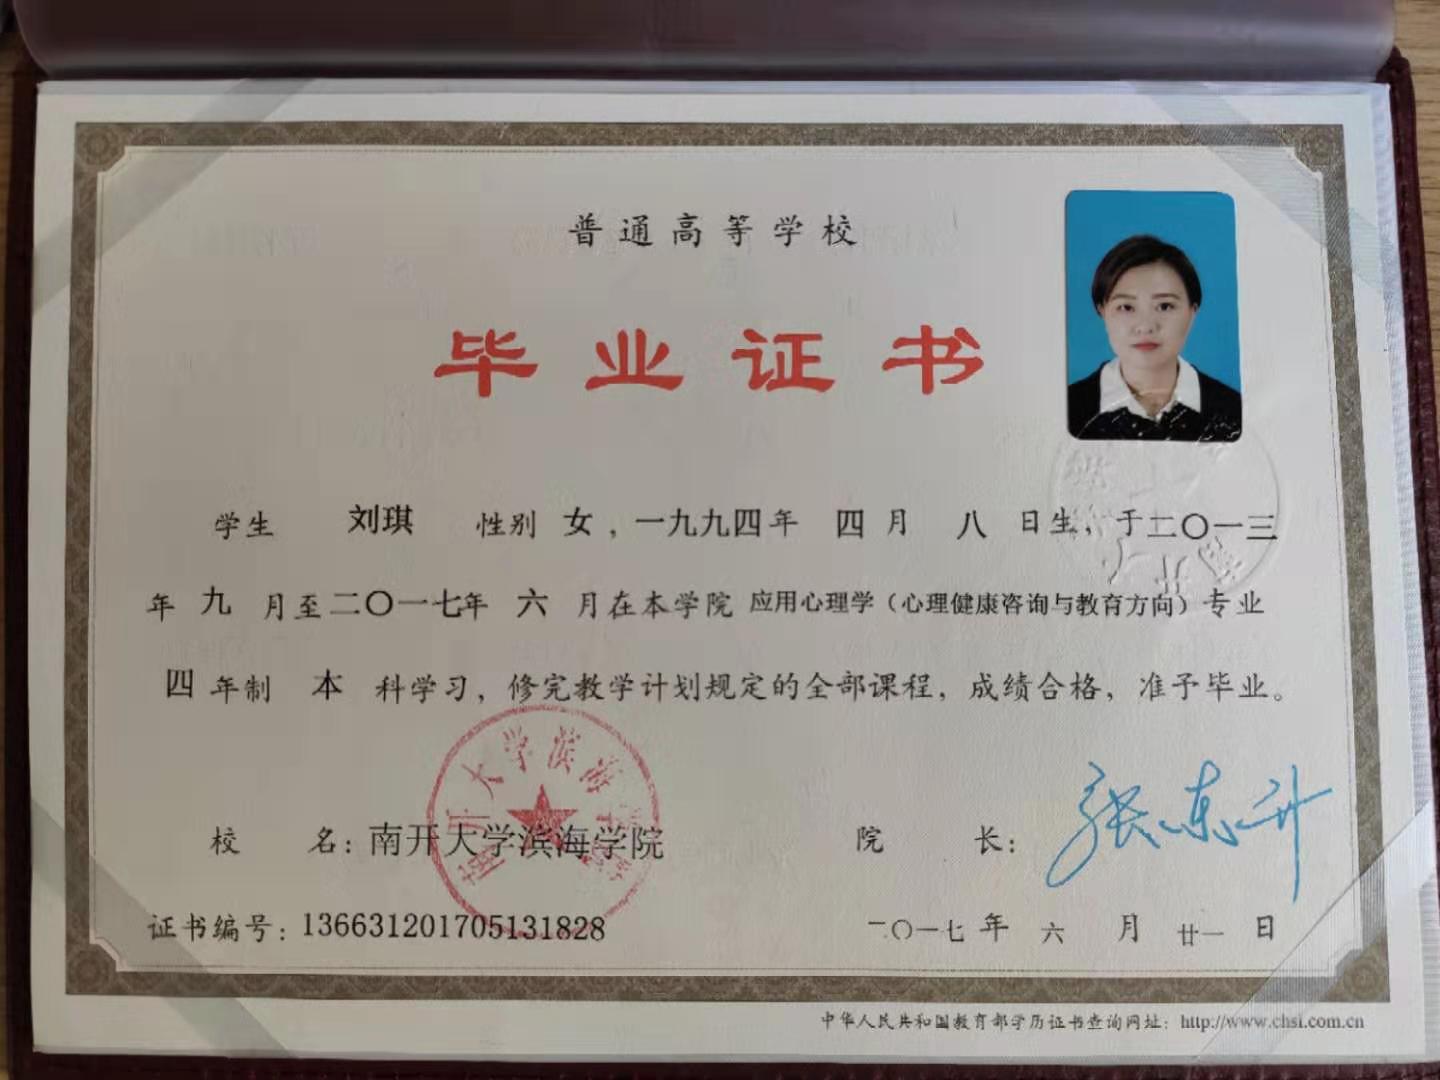 普通高等学校
毕业证书
学生 刘琪 性别 女，一九九四年 四 月 八 日生，于二〇一三
年 九 月至二〇一七年 六 月在本学院 应用心理学（心理健康咨询与教育方向）专业
四 年制 本 科学习，修完教学计划规定的全部课程，成绩合格，准予毕业。
南开大学滨海学院
校 名：南开大学滨海学院 院 长：张东升
证书编号：136631201705131828 二〇一七 年 六 月 廿一 日
中华人民共和国教育部学历证书查询网址：http://www.chsi.com.cn